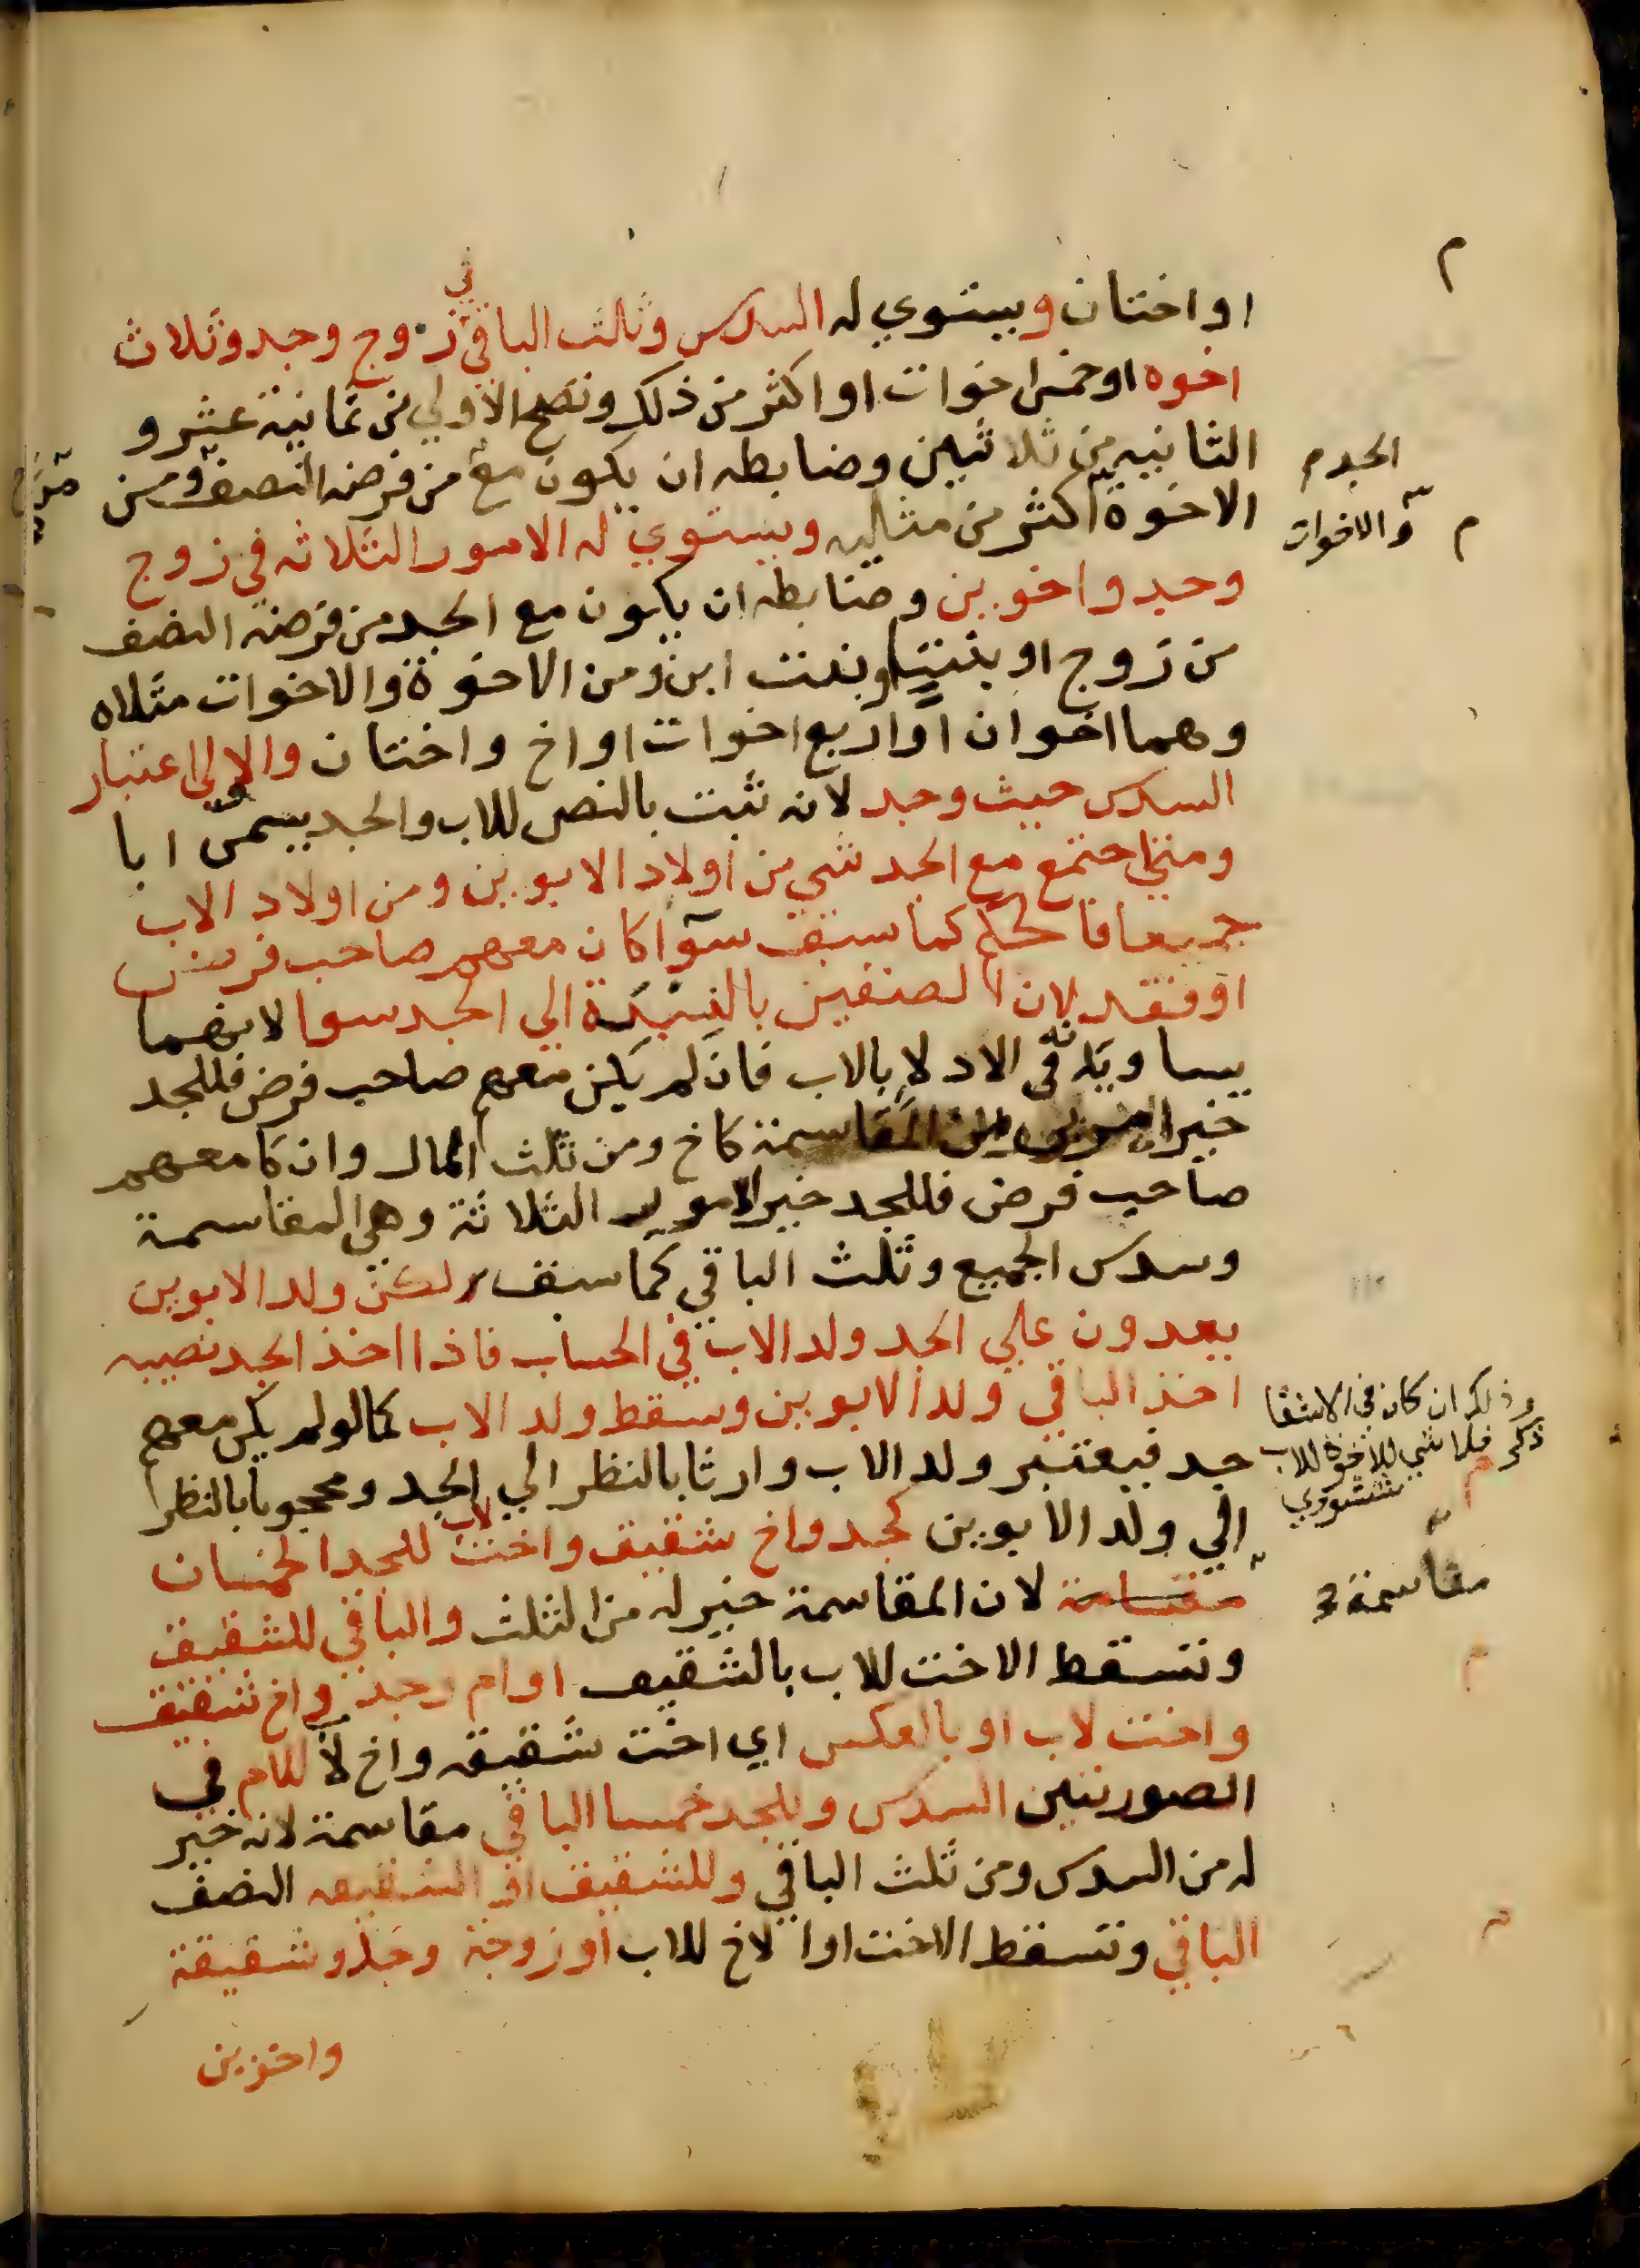 او اختان ويستوي له السدس وثلث الباقي في زوج وجد وثلاث
اخوه او خمس اخوات او اكثر من ذلك وتصح الاولي من ثمانية عشر و
الثانيه من ثلاثين وضابطه ان يكون مع من فرضه النصف ومن
الجد م
الاخوة اكثر من مثليه ويستوي له الامور الثلاثه في زوج
والاخوات م
وجد واخوين وضابطه ان يكون مع الجد من فرضه النصف
من زوج او بنت او بنت ابن ومن الاخوة والاخوات مثلاه
وهما اخوان او اربع اخوات او اخ واختان والاولي اعتبار
السدس حيث وجد لانه ثبت بالنص للاب والجد يسمى ابا
ومتى اجتمع مع الجد شي من اولاد الابوين ومن اولاد الاب
جميعا فالحكم كما سبق سوآ كان معهم صاحب فرض
او فقد لان الصنفين بالنسبة الي الجد سوا لانهما
يساويانه في الادلا بالاب فان لم يكن معهم صاحب فرض فللجد
خير الامرين من المقاسمة كاخ ومن ثلث المال وان كا معهم
صاحب فرض فللجد خير الامور الثلاثة وهي المقاسمة
وسدس الجميع وثلث الباقي كما سبق لكن ولد الابوين
يعدون علي الجد ولد الاب في الحساب فاذا اخذ الجد نصيبه
اخذ الباقي ولد الابوين وسقط ولد الاب كما لو لم يكن معهم
وذلك ان كان في الاشقا
ذكر فلا شي للاخوة للاب
شنشوري
جد فيعتبر ولد الاب وارثا بالنظر الي الجد ومحجوبا بالنظر
الي ولد الابوين كجد واخ شقيق واخت لاب للجد الخمسان
مقاسمة لان المقاسمة خير له من الثلث والباقي للشقيق
مقاسمة
وتسقط الاخت للاب بالشقيق او ام وجد واخ شقيق
واخت لاب او بالعكس اي اخت شقيقه واخ لاب للام في
الصورتين السدس وللجد خمسا الباقي مقاسمة لانه خير
له من السدس ومن ثلث الباقي وللشقيق او الشقيقه النصف
الباقي وتسقط الاخت او الاخ للاب او زوجة وجد وشقيقة
واخوين